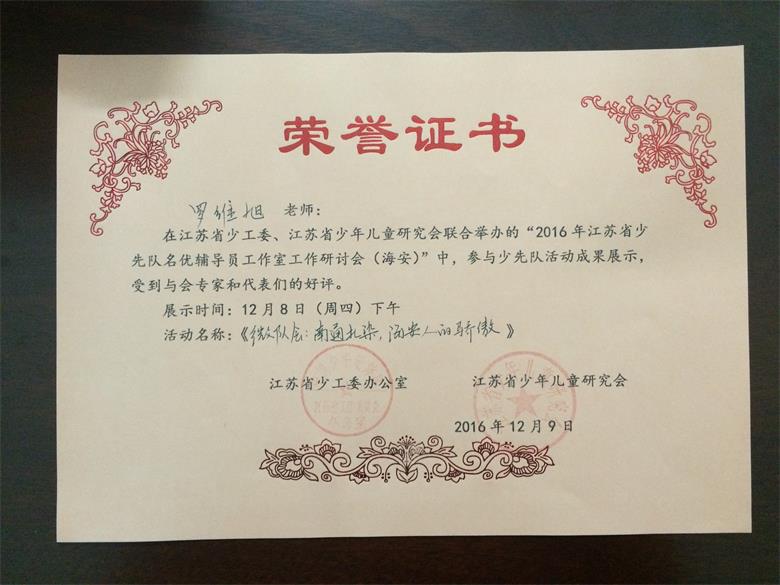 荣誉证书
罗维旭 老师：
在江苏省少工委、江苏省少年儿童研究会联合举办的“2016年江苏省少
先队名优辅导员工作室工作研讨会（海安）”中，参与少先队活动成果展示，
受到与会专家和代表们的好评。
展示时间：12月8日（周四）下午
活动名称：《微队会：南通扎染，海安人的骄傲》
江苏省少工委办公室 江苏省少年儿童研究会
2016年12月9日